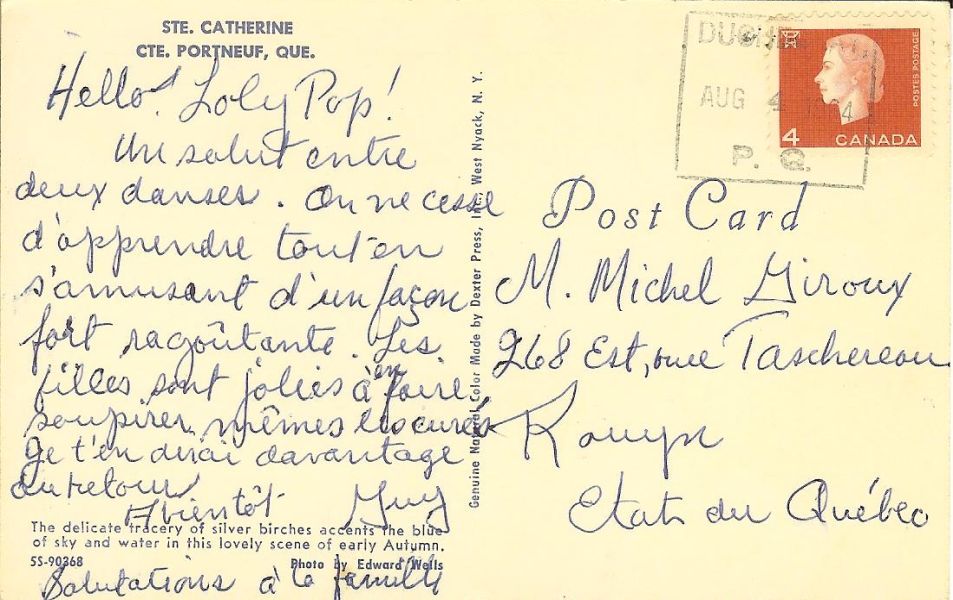 STE. CATHERINE
CTE. PORTNEUF, QUE.
Hello! Loly Pop!
Un salut entre
deux danses. On ne cesse
d'apprendre tout en
s'amusant d'un façon
fort ragoûtante. Les
filles sont jolies à en faire
soupirer mêmes les curés
Je t'en dirai davantage
au retour
A bientôt Guy
The delicate tracery of silver birches accents the blue
of sky and water in this lovely scene of early Autumn.
SS-90368 Photo by Edward Wells
Salutations à la famille
Genuine Natural Color Made by Dexter Press, Inc., West Nyack, N. Y.
AUG 4
P. Q.
POSTES POSTAGE
4 CANADA
Post Card
M. Michel Giroux
268 Est, rue Taschereau
Rouyn
Etat du Québec